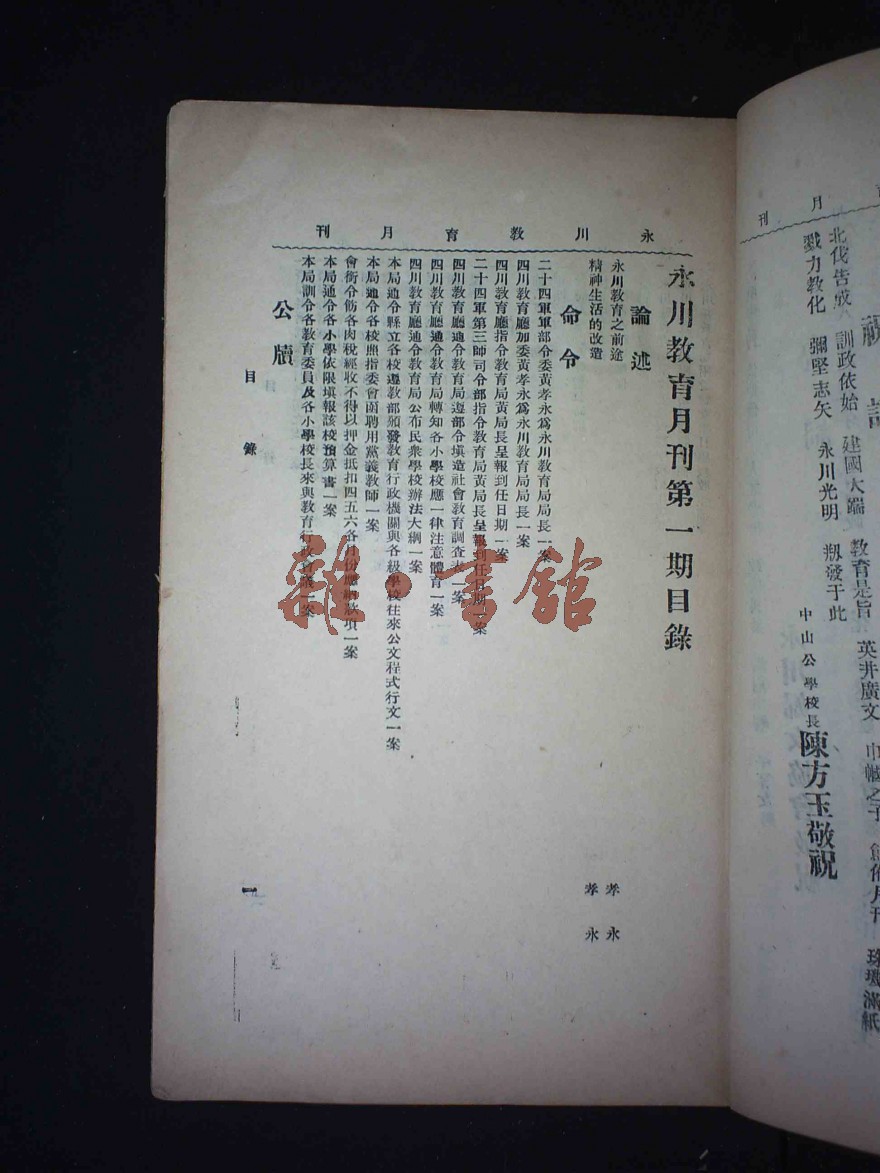 永川教育月刊
永川教育月刊第一期目錄
論述
永川教育之前途　孝永
精神生活的改造　孝永
命令
二十四軍軍部令委黃孝永爲永川教育局局長一案
四川教育廳加委黃孝永爲永川教育局局長一案
四川教育廳指令教育局黃局長呈報到任日期一案
二十四軍第三師司令部指令教育局黃局長呈報到任日期一案
四川教育廳通令教育局遵部令填造社會教育調查表一案
四川教育廳通令教育局轉知各小學校應一律注意體育一案
四川教育廳通令教育局公布民衆學校辦法大綱一案
本局通令縣立各校遵教部頒發教育行政機關與各級學校往來公文程式行文一案
本局通令各校照指委會函聘用黨義教師一案
會銜令飭各肉稅經收不得以押金抵扣四五六各月份應納款項一案
本局通令各小學依限填報該校預算書一案
本局訓令各教育委員及各小學校長來與教育行政會議一案
公牘
目錄
一
雜·書館
月刊
祝
英井廣文　巾幗之子　月刊　滿紙
北伐告成　訓政依始　建國大端　教育是旨
戮力教化　彌堅志矢　永川光明　刱發于此
中山公學校長陳方玉敬祝